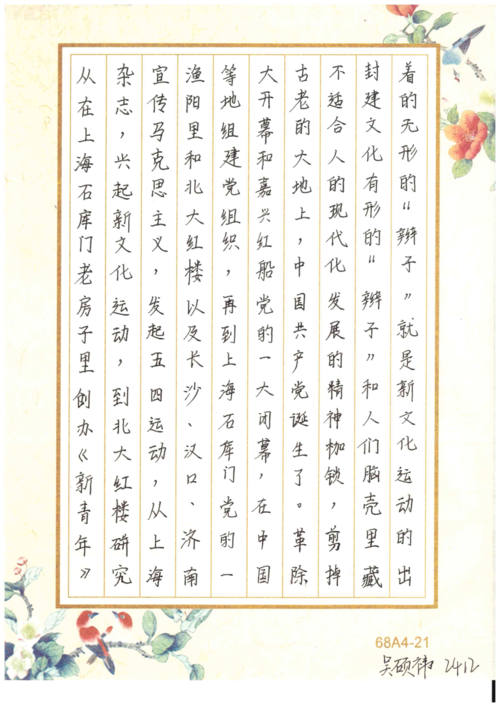 从在上海石库门老房子里创办《新青年》
杂志，兴起新文化运动，到北大红楼研究
宣传马克思主义，发起五四运动，从上海
渔阳里和北大红楼以及长沙、汉口、济南
等地组建党组织，再到上海石库门党的一
大开幕和嘉兴红船党的一大闭幕，在中国
古老的大地上，中国共产党诞生了。革除
不适合人的现代化发展的精神枷锁，剪掉
封建文化有形的“辫子”和人们脑壳里藏
着的无形的“辫子”就是新文化运动的出
68A4-21
吴硕祎 2412